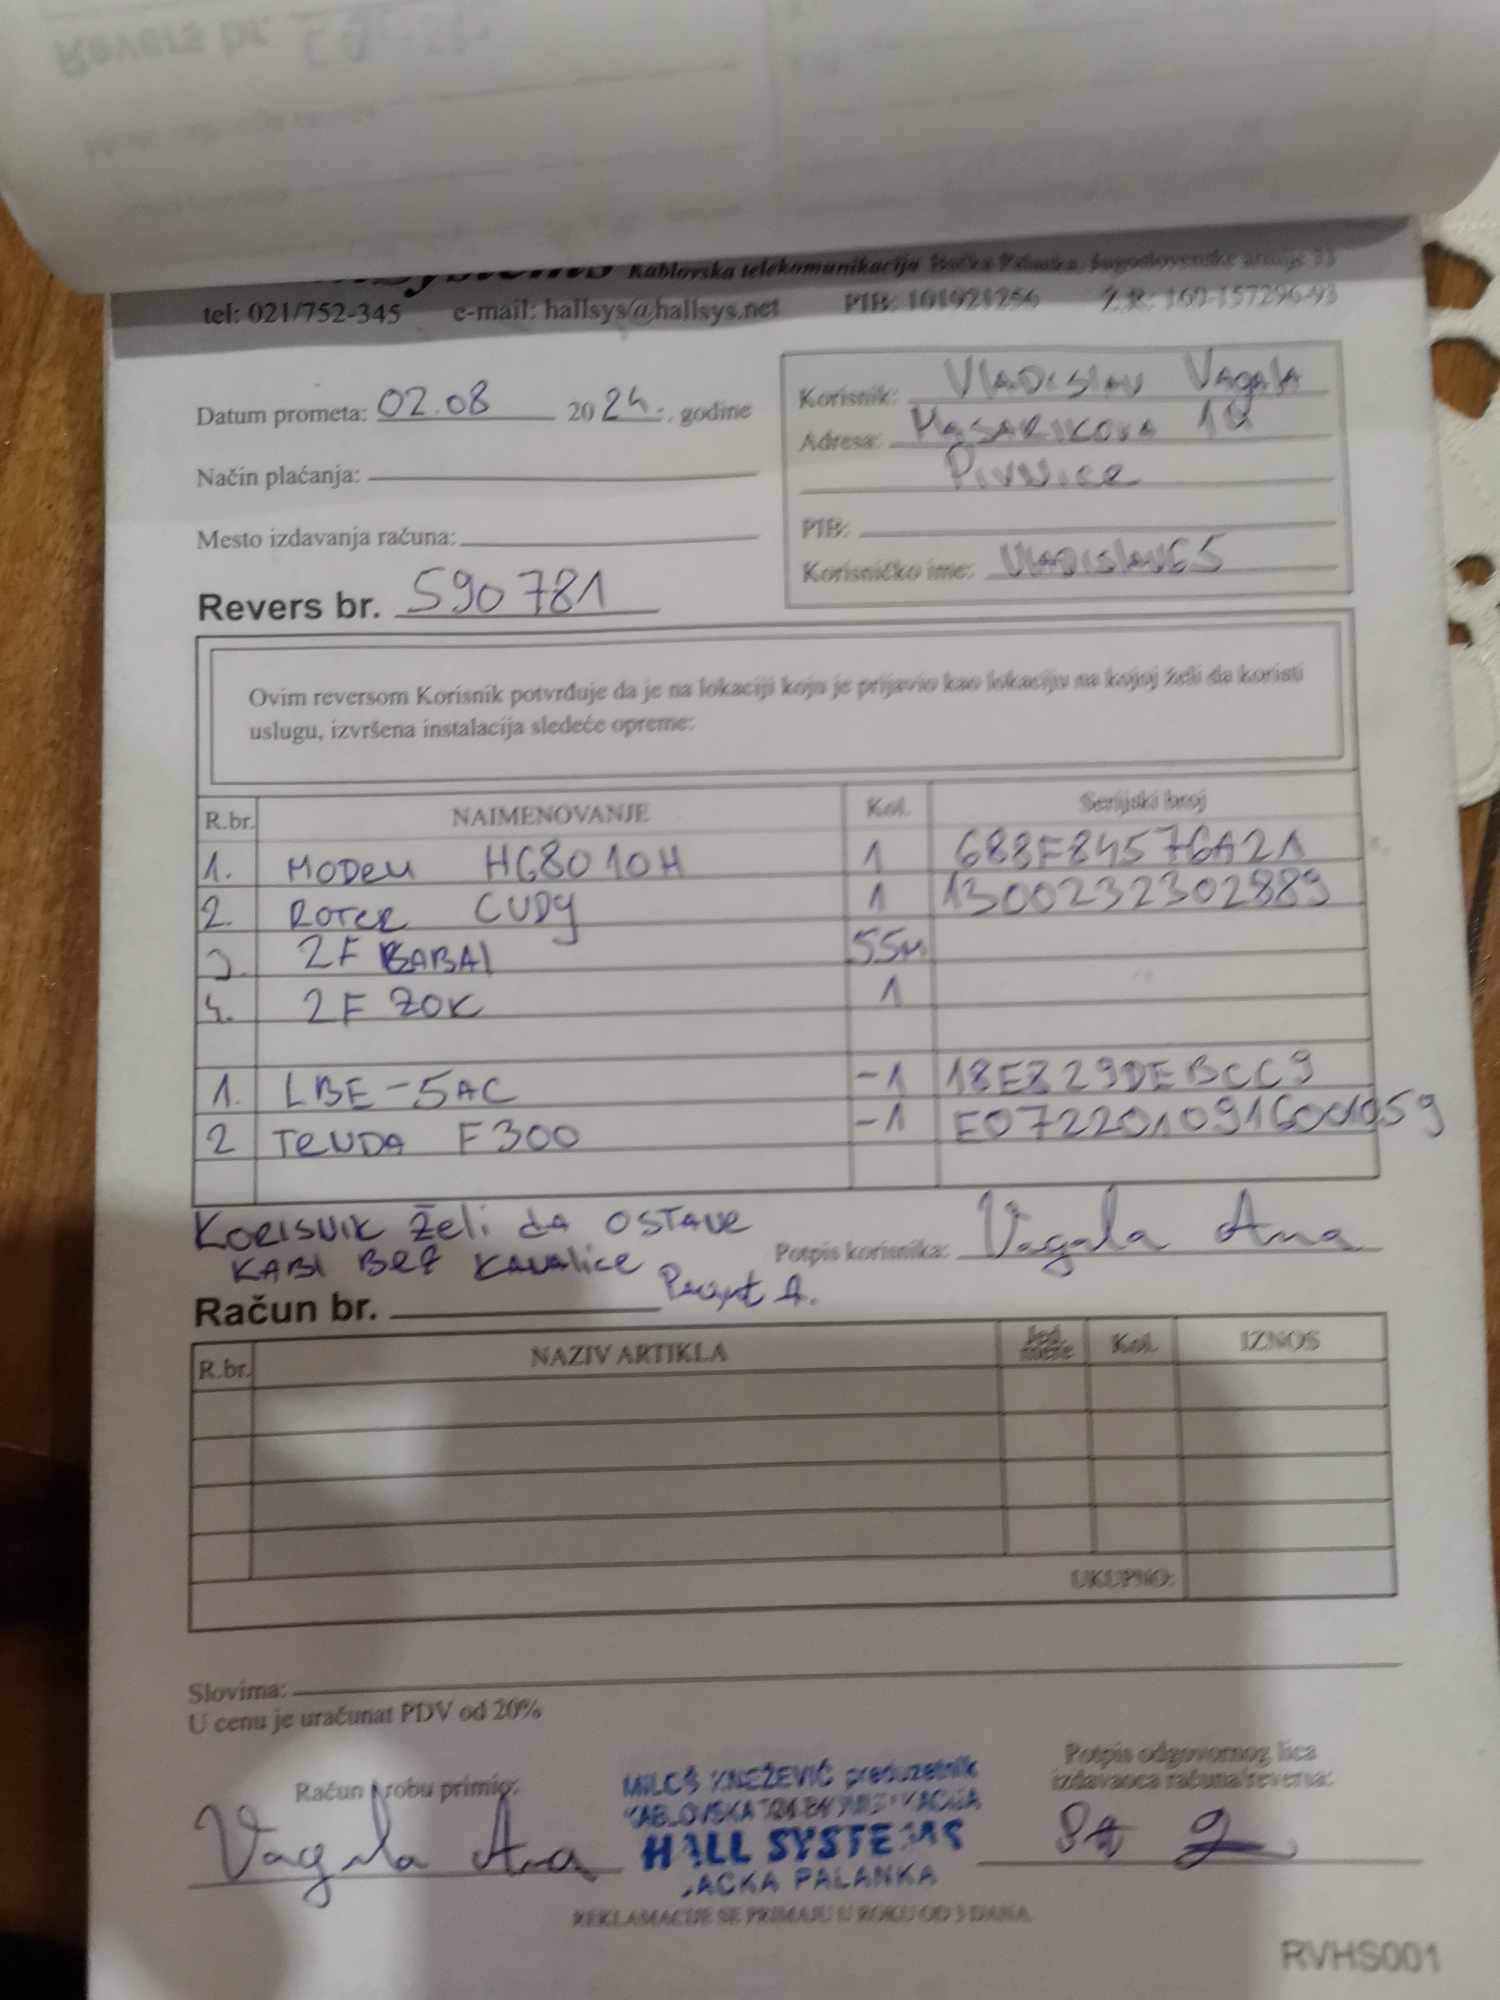 Revers br.
Kablovska telekomunikacija Bačka Palanka, Jugoslovenske armije 33
tel: 021/752-345 e-mail: hallsys@hallsys.net PIB: 101921256 Ž.R: 160-157296-93
Datum prometa: 02.08 2024. godine
Način plaćanja:
Mesto izdavanja računa:
Korisnik: Vladislav Vagala
Adresa: Masarikova
Pivnice
PIB:
Korisničko ime: Vladislav65
Revers br. 590781
Ovim reversom Korisnik potvrđuje da je na lokaciji koju je prijavio kao lokaciju na kojoj želi da koristi
uslugu, izvršena instalacija sledeće opreme:
R.br. NAIMENOVANJE Kol. Serijski broj
1. MODEM HG8010H 1 688F84576A21
2. ROTER CUDY 1 1300232302889
3. 2F KABAL 55m
4. 2F ZOK 1
1. LBE-5AC -1 18E829DEBCC9
2 TENDA F300 -1 E0722010916001059
KORISNIK želi da OSTAVE
KABL BEZ KANALICE
Potpis korisnika: Vagala Ana
Račun br.
R.br. NAZIV ARTIKLA Jed. mere Kol. IZNOS
UKUPNO:
Slovima:
U cenu je uračunat PDV od 20%
Račun i robu primio:
Vagala Ana
MILOŠ KNEŽEVIĆ preduzetnik
KABLOVSKA TELEKOMUNIKACIJA
HALL SYSTEMS
BAČKA PALANKA
Potpis odgovornog lica
izdavaoca računa/reversa:
REKLAMACIJE SE PRIMAJU U ROKU OD 3 DANA
RVHS001